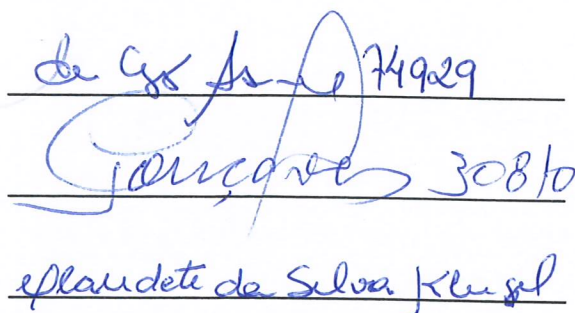 de 74929
Gonçalves 30810
Claudete da Silva Klugel